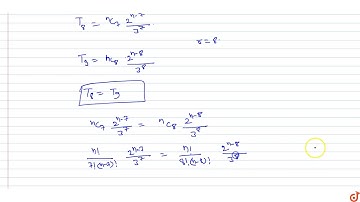 T₈ = ⁿC₇ 2ⁿ⁻⁷/3⁷
r = 8
T₉ = ⁿC₈ 2ⁿ⁻⁸/3⁸
T₈ = T₉
ⁿC₇ 2ⁿ⁻⁷/3⁷ = ⁿC₈ 2ⁿ⁻⁸/3⁸
n!/7!(n-7)! 2ⁿ⁻⁷/3⁷ = n!/8!(n-8)! 2ⁿ⁻⁸/3⁸